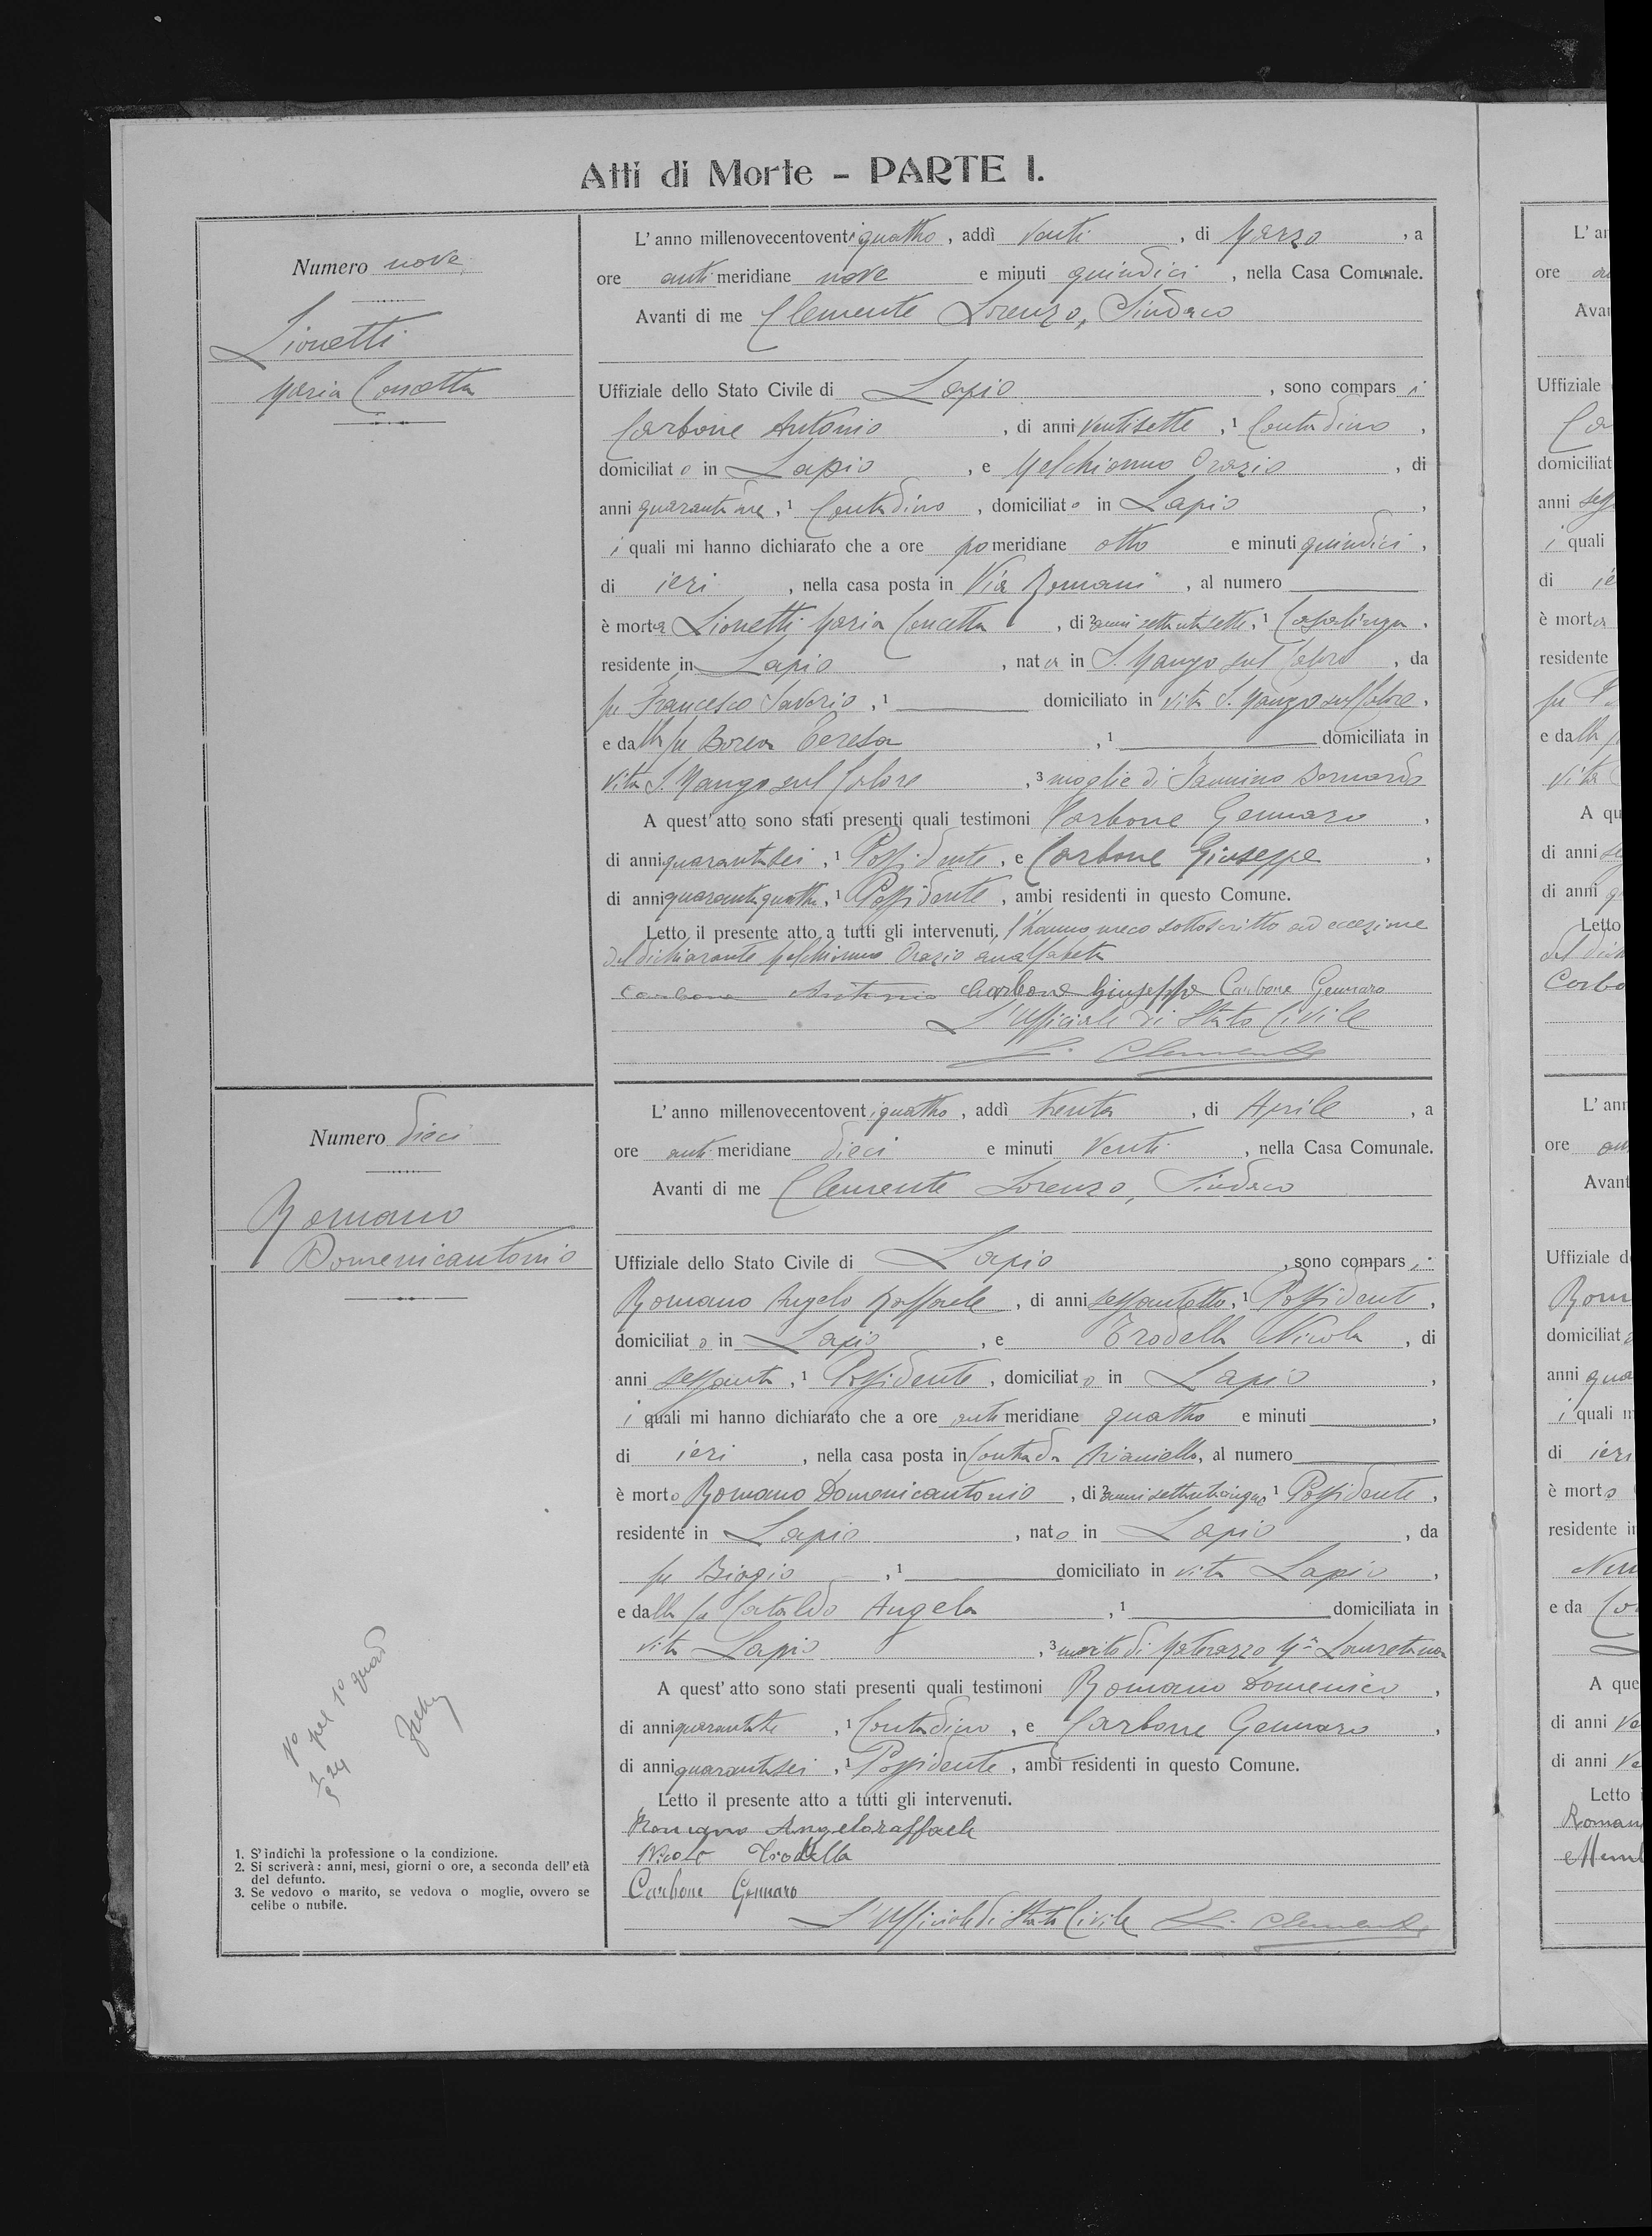 Atti di Morte - PARTE I.
Numero nove
Lionetti
Maria Concetta
L'anno millenovecentoventiquattro, addì venti, di Marzo, a
ore antimeridiane nove e minuti quindici, nella Casa Comunale.
Avanti di me Clemente Lorenzo, Sindaco
Uffiziale dello Stato Civile di Lapio, sono comparsi
Carbone Antonio, di anni ventisette, 1 Contadino,
domiciliato in Lapio, e Melchionno Orazio, di
anni quarantadue, 1 Contadino, domiciliato in Lapio,
i quali mi hanno dichiarato che a ore pomeridiane otto e minuti quindici,
di ieri, nella casa posta in Via Romani, al numero
è morta Lionetti Maria Concetta, di 2 anni settantasette, 1 Casalinga,
residente in Lapio, nata in S. Mango sul Calore, da
fu Francesco Saverio, 1 domiciliato in vita S. Mango sul Calore,
e dalla fu Borea Teresa, 1 domiciliata in
vita S. Mango sul Calore, 3 moglie di Iannino Bernardo
A quest'atto sono stati presenti quali testimoni Carbone Gennaro,
di anni quarantasei, 1 Possidente, e Carbone Giuseppe,
di anni quarantaquattro, 1 Possidente, ambi residenti in questo Comune.
Letto il presente atto a tutti gli intervenuti, l'hanno meco sottoscritto ad eccezione
del dichiarante Melchionno Orazio analfabeta
Carbone Antonio Carbone Giuseppe Carbone Gennaro
L'Ufficiale di Stato Civile
L. Clemente
Numero dieci
Romano
Domenicantonio
L'anno millenovecentoventiquattro, addì trenta, di Aprile, a
ore antimeridiane dieci e minuti venti, nella Casa Comunale.
Avanti di me Clemente Lorenzo, Sindaco
Uffiziale dello Stato Civile di Lapio, sono comparsi
Romano Angelo Raffaele, di anni sessantotto, 1 Possidente,
domiciliato in Lapio, e Trodella Nicola, di
anni sessanta, 1 Possidente, domiciliato in Lapio,
i quali mi hanno dichiarato che a ore antimeridiane quattro e minuti,
di ieri, nella casa posta in Contrada Arianiello, al numero
è morto Romano Domenicantonio, di 2 anni settantacinque 1 Possidente,
residente in Lapio, nato in Lapio, da
fu Biagio, 1 domiciliato in vita Lapio,
e dalla fu Cataldo Angela, 1 domiciliata in
vita Lapio, 3 marito di Materazzo Mª Lauretana
A quest'atto sono stati presenti quali testimoni Romano Domenico,
di anni quarantatre, 1 Contadino, e Carbone Gennaro,
di anni quarantasei, 1 Possidente, ambi residenti in questo Comune.
Letto il presente atto a tutti gli intervenuti.
Romano Angeloraffaele
Nicola Trodella
Carbone Gennaro
L'Ufficiale di Stato Civile L. Clemente
Vº pel 1º quad
1. S'indichi la professione o la condizione.
2. Si scriverà: anni, mesi, giorni o ore, a seconda dell'età
del defunto.
3. Se vedovo o marito, se vedova o moglie, ovvero se
celibe o nubile.